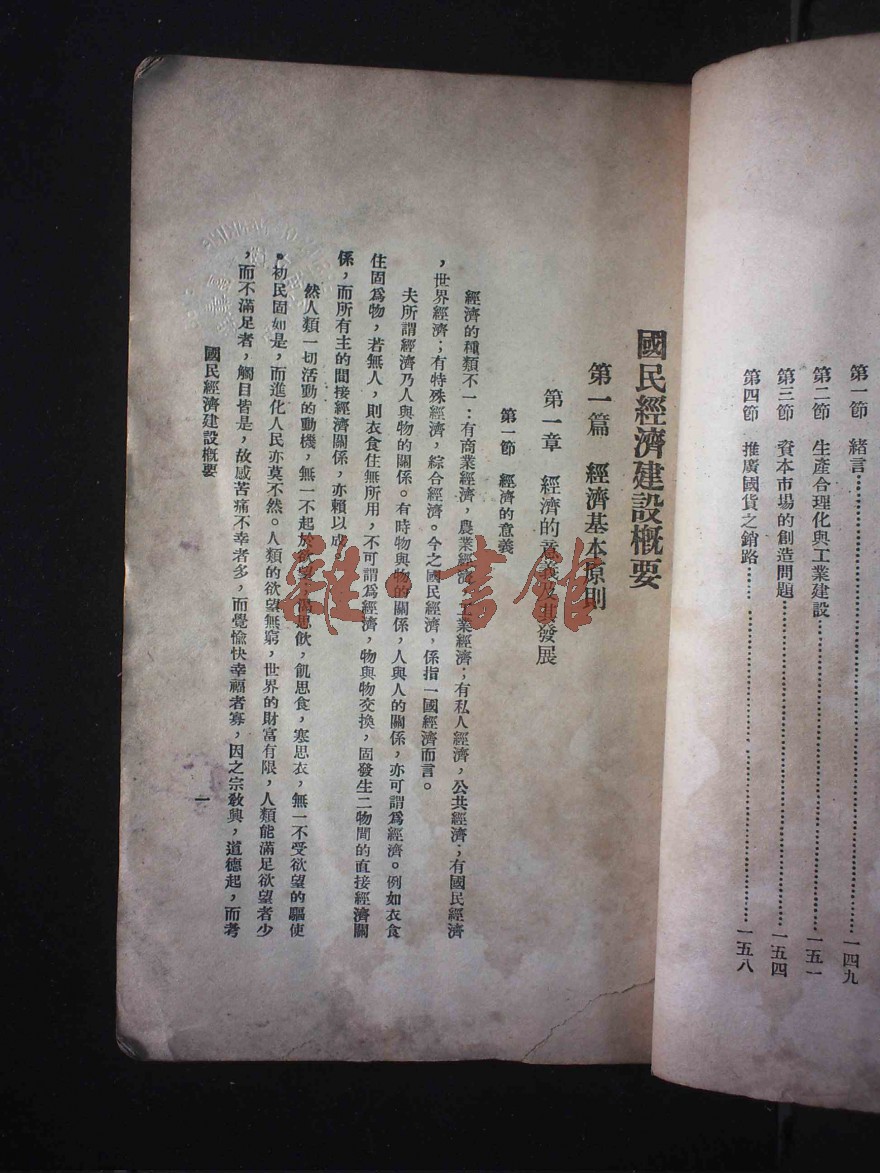 第一節　緒言⋯⋯⋯⋯一四九
第二節　生產合理化與工業建設⋯⋯⋯⋯一五一
第三節　資本市場的創造問題⋯⋯⋯⋯一五四
第四節　推廣國貨之銷路⋯⋯⋯⋯一五八
國民經濟建設概要
第一篇　經濟基本原則
第一章　經濟的意義及其發展
第一節　經濟的意義
經濟的種類不一：有商業經濟，農業經濟，工業經濟；有私人經濟，公共經濟；有國民經濟
，世界經濟；有特殊經濟，綜合經濟。今之國民經濟，係指一國經濟而言。
夫所謂經濟乃人與物的關係。有時物與物的關係，人與人的關係，亦可謂爲經濟。例如衣食
住固爲物，若無人，則衣食住無所用，不可謂爲經濟，物與物交換，固發生二物間的直接經濟關
係，而所有主的間接經濟關係，亦賴以成。
然人類一切活動的動機，無一不起於欲望，渴思飲，飢思食，寒思衣，無一不受欲望的驅使
。初民固如是，而進化人民亦莫不然。人類的欲望無窮，世界的財富有限，人類能滿足欲望者少
，而不滿足者，觸目皆是，故感苦痛不幸者多，而覺愉快幸福者寡，因之宗教興，道德起，而考
國民經濟建設概要
一
雜·書館